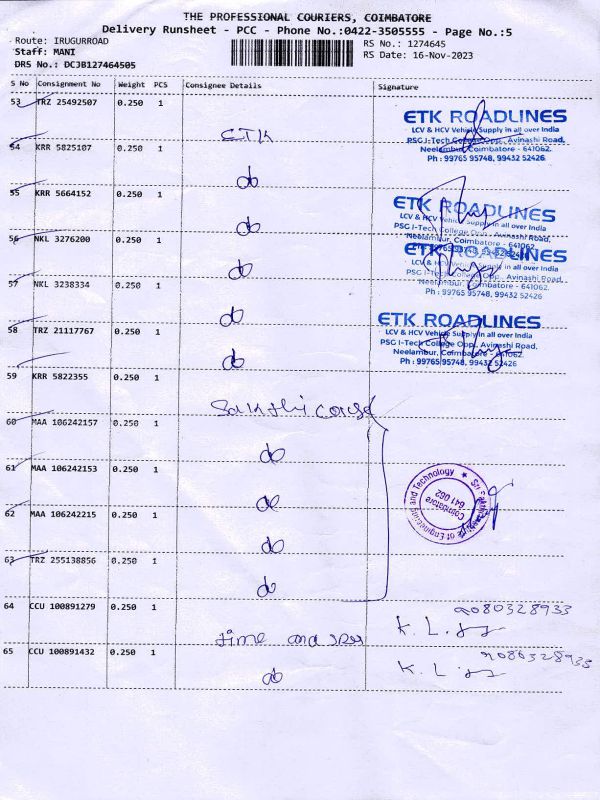 THE PROFESSIONAL COURIERS, COIMBATORE
Delivery Runsheet - PCC - Phone No.:0422-3505555 - Page No.:5
Route: IRUGURROAD
RS No.: 1274645
Staff: MANI
RS Date: 16-Nov-2023
DRS No.: DCJB127464505
S No Consignment No Weight PCS Consignee Details Signature
53 TRZ 25492507 0.250 1
ETK
ETK ROADLINES
LCV & HCV Vehicle Supply in all over India
PSG I-Tech College Opp., Avinashi Road,
Neelambur, Coimbatore - 641062.
Ph : 99765 95748, 99432 52426
54 KRR 5825107 0.250 1
do
55 KRR 5664152 0.250 1
do
ETK ROADLINES
LCV & HCV Vehicle Supply in all over India
PSG I-Tech College Opp., Avinashi Road,
Neelambur, Coimbatore - 641062.
56 NKL 3276200 0.250 1
do
ETK ROADLINES
LCV & HCV Vehicle Supply in all over India
PSG I-Tech College Opp., Avinashi Road,
Neelambur, Coimbatore - 641062.
Ph : 99765 95748, 99432 52426
57 NKL 3238334 0.250 1
do
58 TRZ 21117767 0.250 1
do
ETK ROADLINES
LCV & HCV Vehicle Supply in all over India
PSG I-Tech College Opp., Avinashi Road,
Neelambur, Coimbatore - 641062.
Ph : 99765 95748, 99432 52426
59 KRR 5822355 0.250 1
Sakthi
60 MAA 106242157 0.250 1
do
61 MAA 106242153 0.250 1
do
62 MAA 106242215 0.250 1
do
of Engineering and Technology ★ Sri
Coimbatore
641 062
63 TRZ 255138856 0.250 1
do
64 CCU 100891279 0.250 1
time and
9080328933
K. L.
65 CCU 100891432 0.250 1
do
9080328933
K. L.